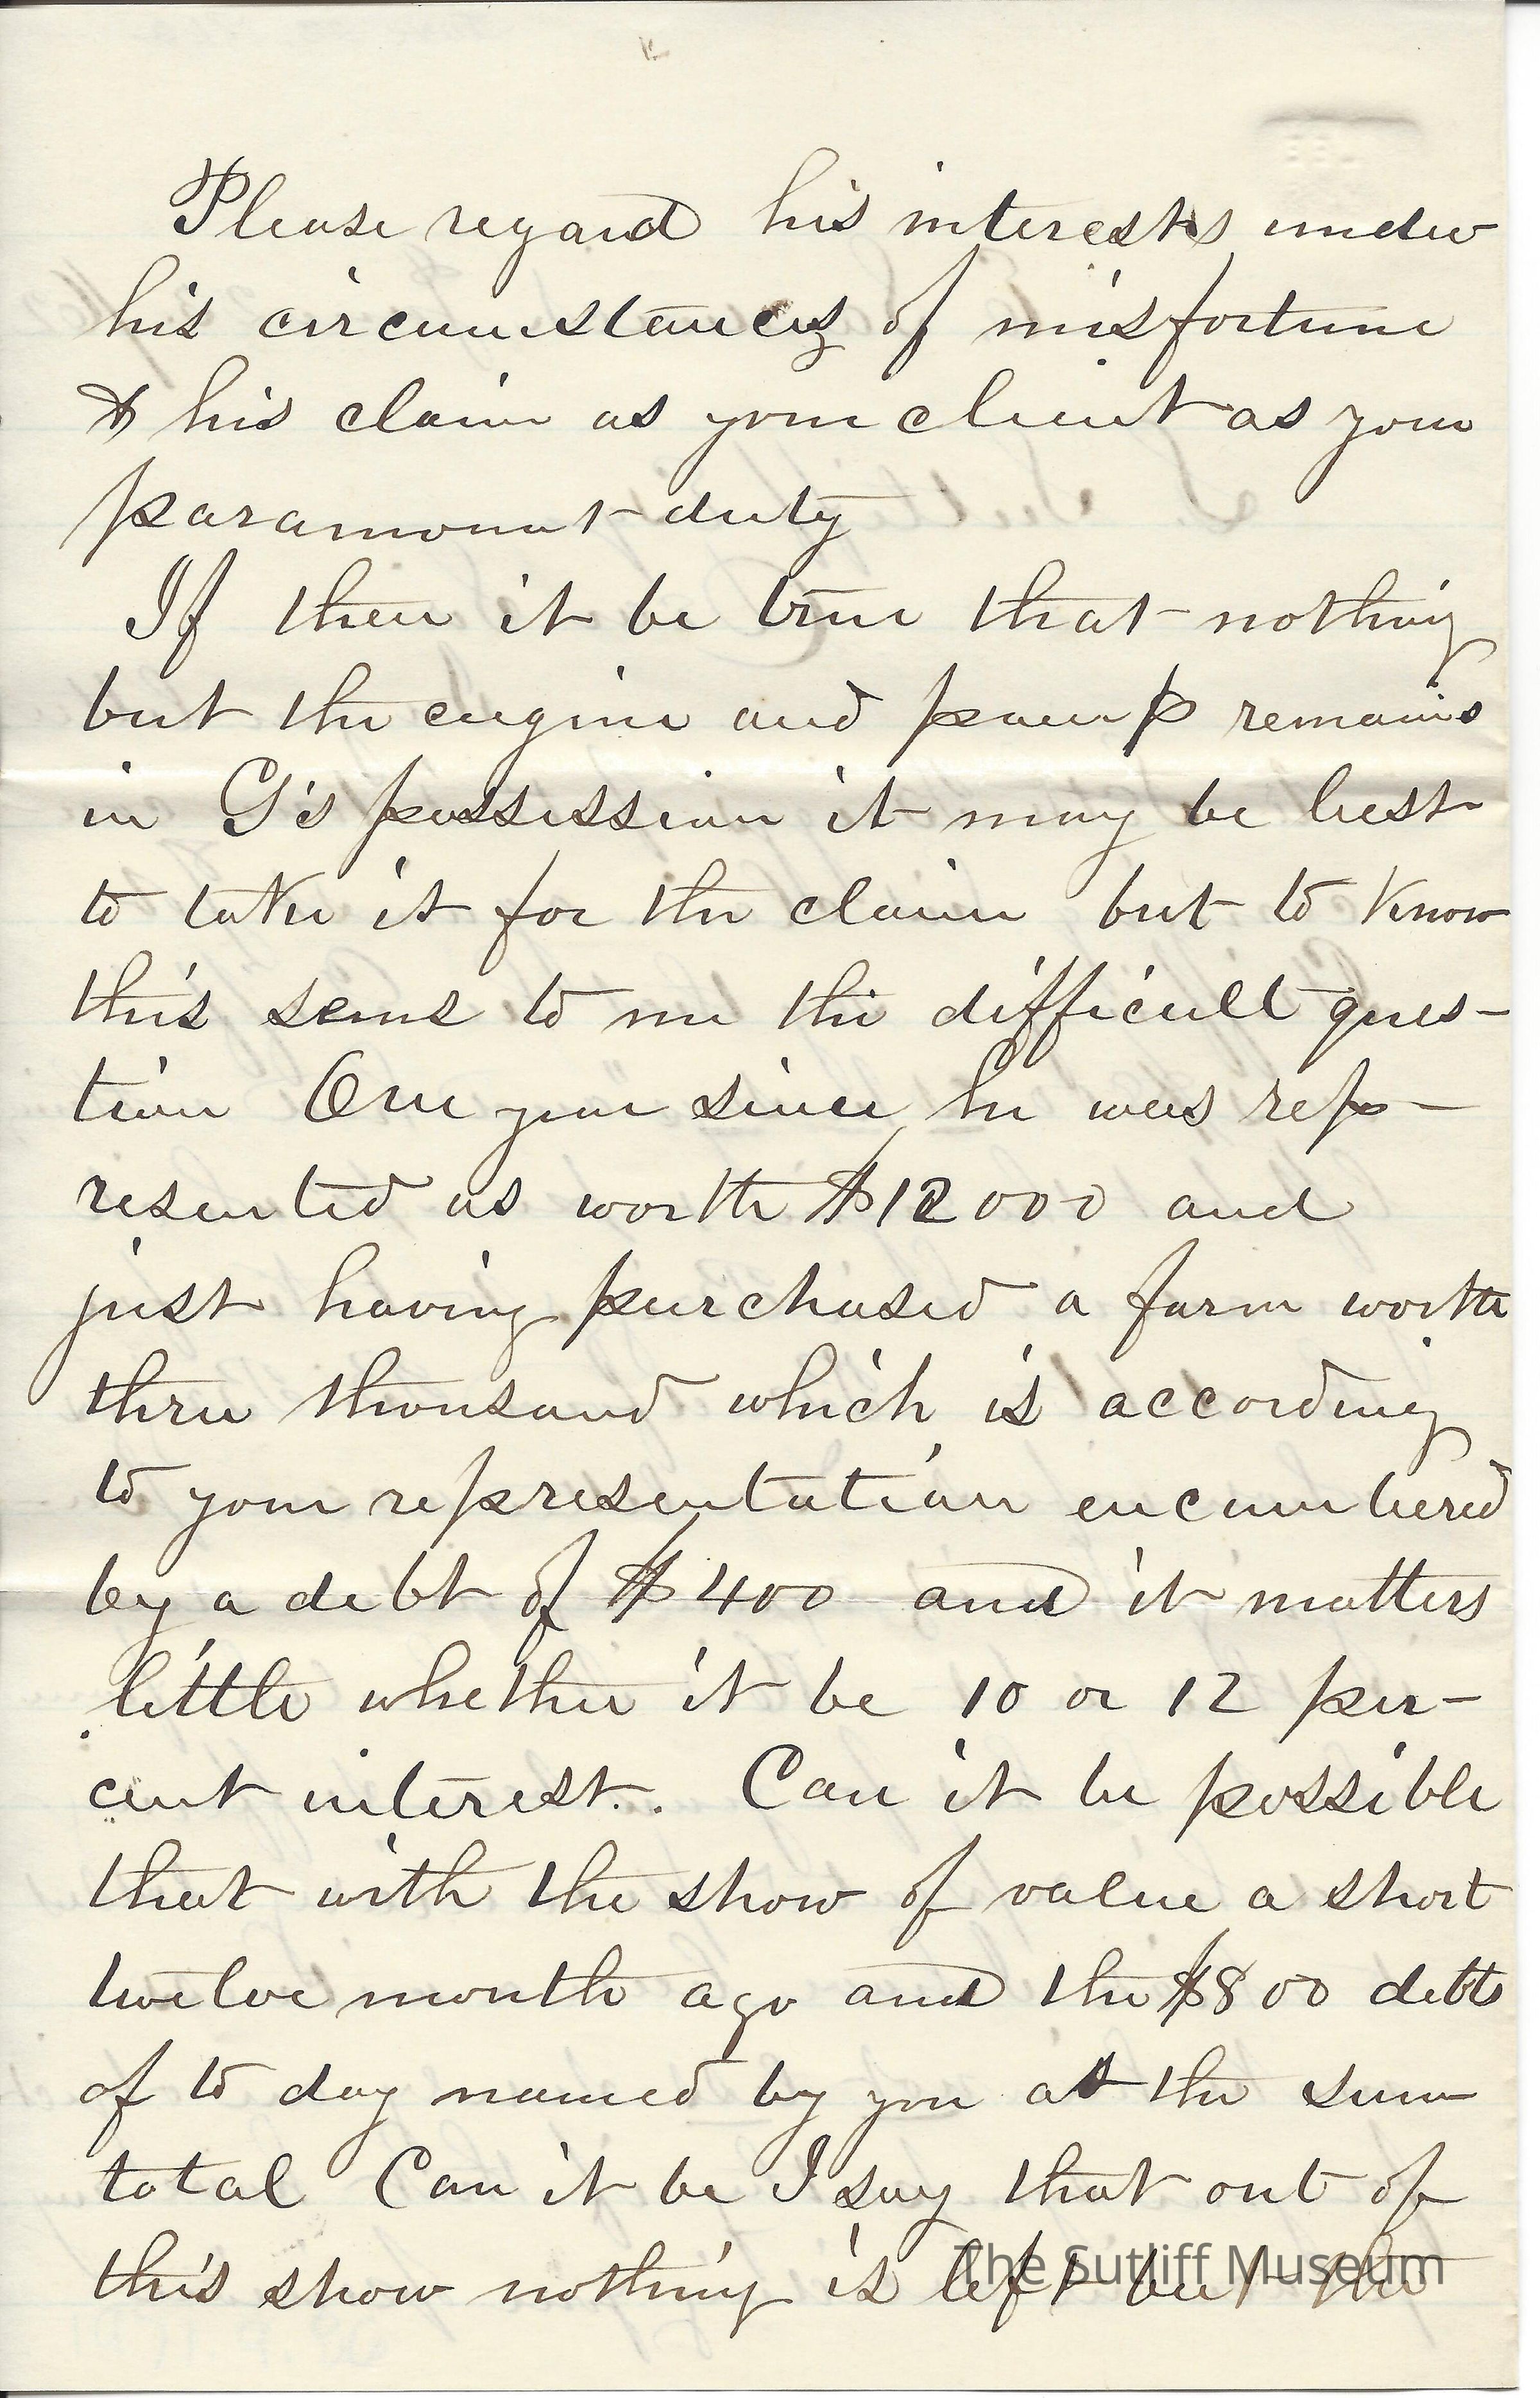 Please regard his interests under
his circumstances of misfortune
& his claim as your client as your
paramount duty
If then it be true that nothing
but the engine and pump remains
in G's possession it may be best
to take it for the claim but to know
this seems to me the difficult ques-
tion One year since he was rep-
resented as worth $12000 and
just having purchased a farm worth
three thousand which is according
to your representation encumbered
by a debt of $400 and it matters
little whether it be 10 or 12 per-
cent interest. Can it be possible
that with the show of value a short
twelve month ago and the $800 debts
of to day named by you as the sum
total Can it be I say that out of
this show nothing is left but the
The Sutliff Museum